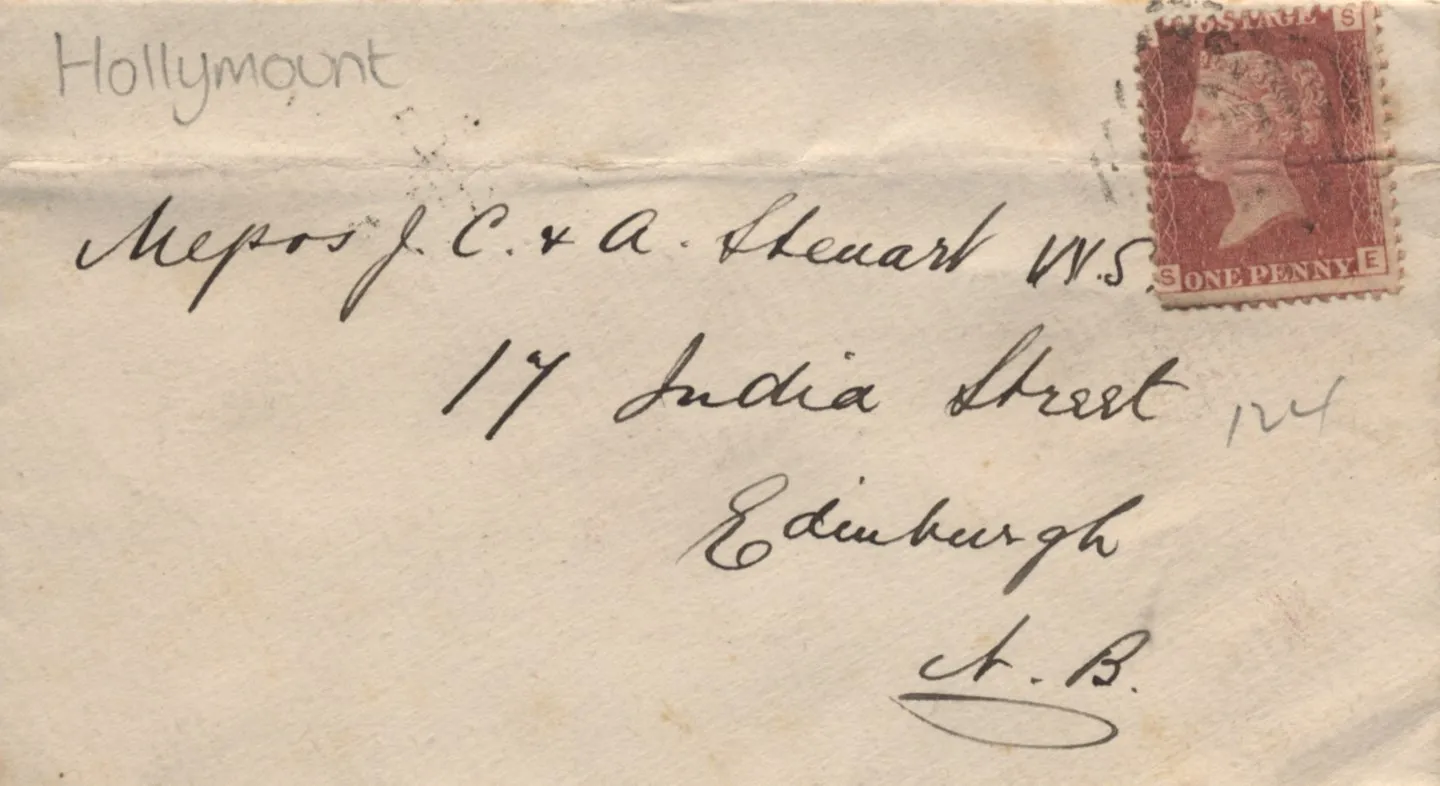 Hollymount
POSTAGE S
Messrs J. C. & A. Steuart W.S.
S ONE PENNY E
17 India Street
124
Edinburgh
N. B.